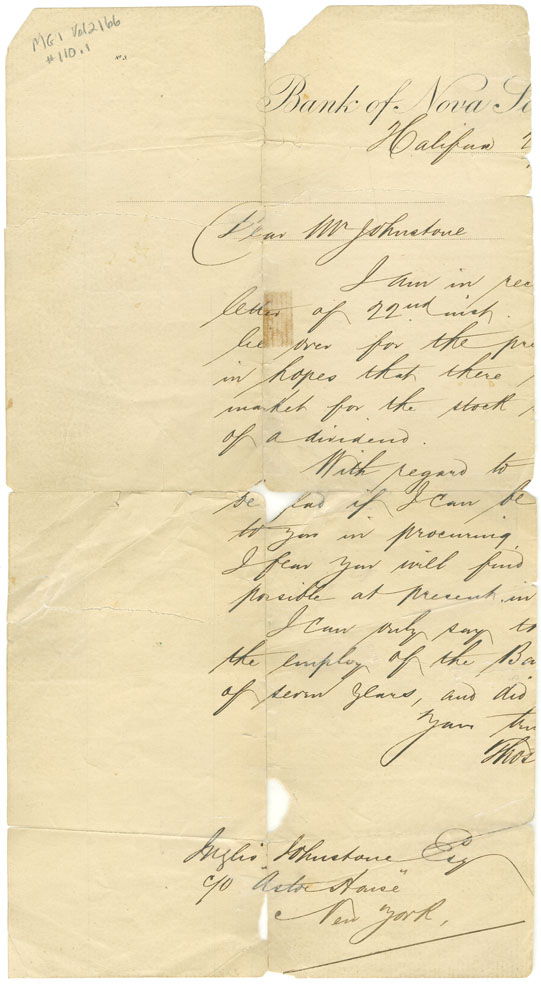 MG1 Vol 2166
#110.1
No 3.
Bank of Nova Sc
Halifax
Dear Mr Johnstone
I am in rec
letter of 22nd inst.
lie over for the pre
in hopes that there
market for the stock
of a dividend.
With regard to
be glad if I can be
to you in procuring
I fear you will find
possible at present in
I can only say to
the employ of the Ba
of seven years, and did
Yours tru
Thos
Inglis Johnstone Esq
c/o "Astor House"
New York,